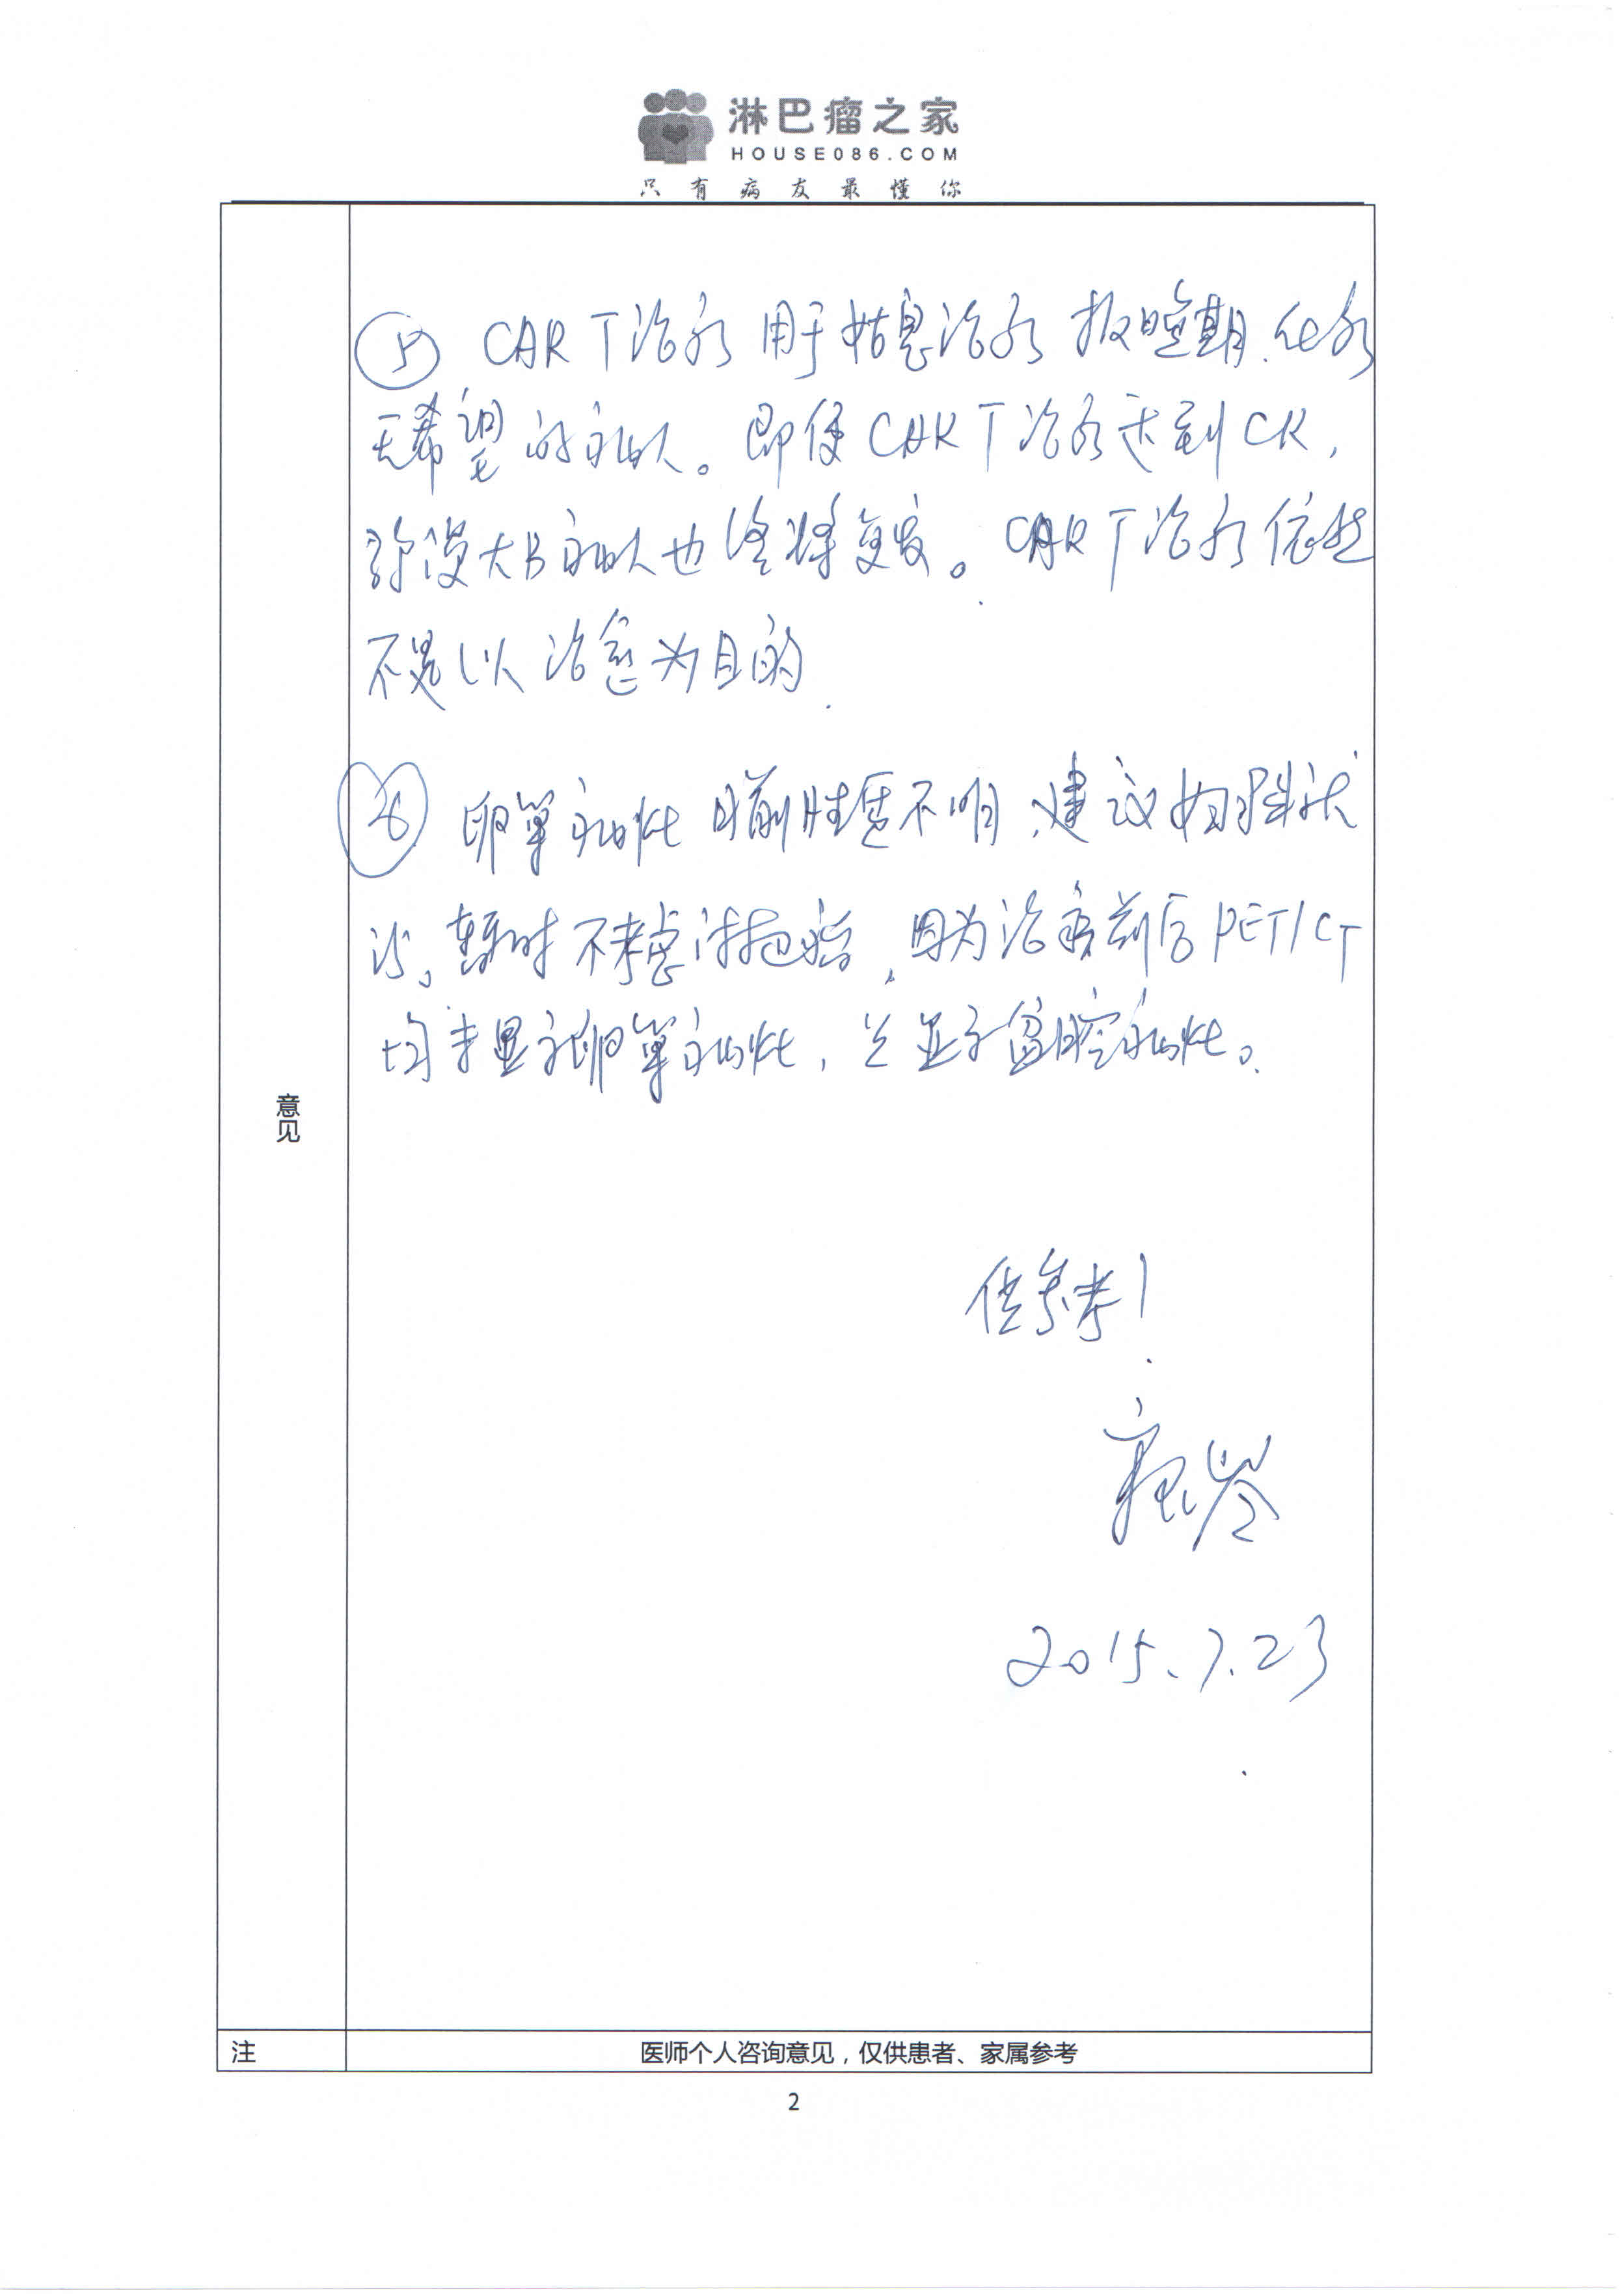 淋巴瘤之家
HOUSE086.COM
只有病友最懂你
⑤ CAR T治疗 用于姑息治疗 极晚期、化疗
无希望的病人。即便CAR T治疗达到CR,
弥漫大B病人也终将复发。CAR T治疗依然
不是以治愈为目的.
⑥ 卵巢病灶 目前性质不明,建议妇科就
诊。暂时不考虑淋巴瘤,因为治疗前后PET/CT
均未显示卵巢病灶, 盆腔病灶。
意见
供参考!
2015.7.23
注
医师个人咨询意见,仅供患者、家属参考
2